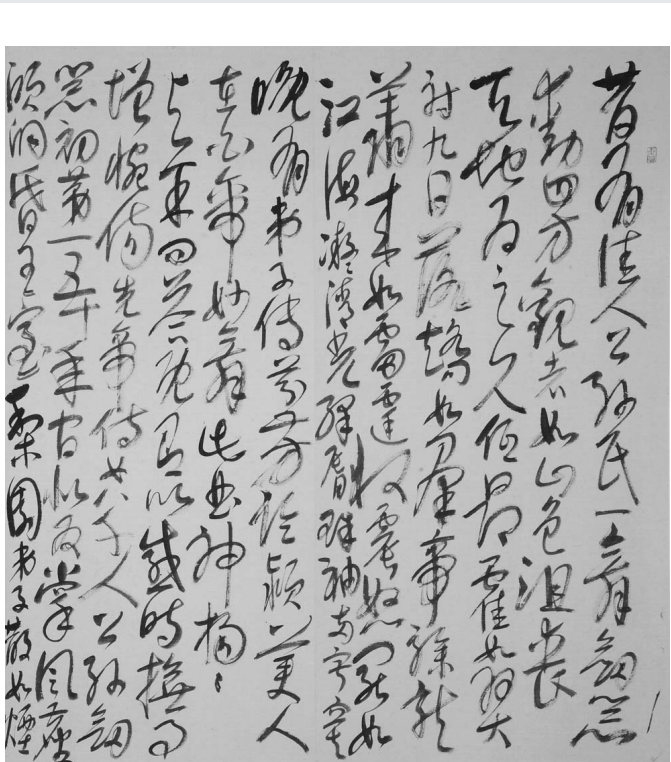 昔有佳人公孫氏一舞劍器
動四方觀者如山色沮喪
天地為之久低昂霍如羿
射九日落矯如羣帝驂龍
翔来如雷霆收震怒罷如
江海凝清光絳脣珠袖兩寂寞
晚有弟子傳芬芳臨潁美人
在白帝妙舞此曲神揚揚
與余問答既有以感時撫事
增惋傷先帝侍女八千人公孫劍
器初第一五十年間似反掌風塵
澒洞昏王室梨園弟子散如煙